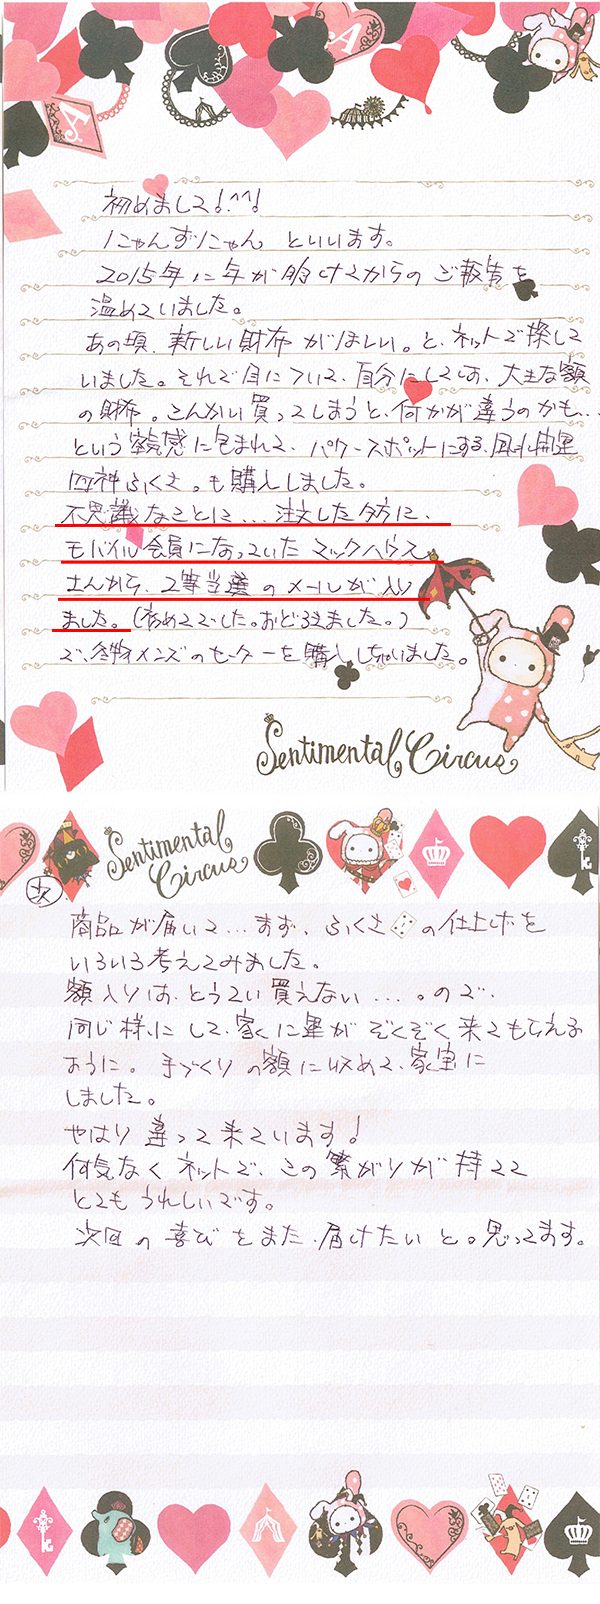 初めまして!^^!
にゃんずにゃん といいます。
2015年に年が明けてからの ご報告を
温めていました。
あの頃、新しい財布 がほしい。と、ネットで探して
いました。それで目について、自分にしては、大きな額
の財布。こんかい買ってしまうと、何かが違うのかも...
という 感に包まれて、パワースポットにする、風水開運
四神ふくさ。も購入しました。
不思議なことに...注文した夕方に、
モバイル会員になっていた マックハウス
さんから、2等当選のメールが入り
ました。(初めてでした。おどろきました。)
で、冬物メンズのセーターを購入しちゃいました。
Sentimental Circus
Sentimental
Circus
次
商品が届いて...まず、ふくさの仕上げを
いろいろ考えてみました。
額入りは、とうてい買えない....。ので、
同じ様にして、家に運がぞくぞく来てもらえる
ように。手づくりの額に収めて、家宝に
しました。
やはり違って来ています!
何気なくネットで、この繋がりが持てて
とてもうれしいです。
次回の喜びをまた、届けたいと。思ってます。